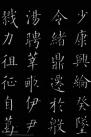 少康興綸癸墜
令緒鼎遷於殷
湯聘莘畝伊尹
戮力徂征自葛